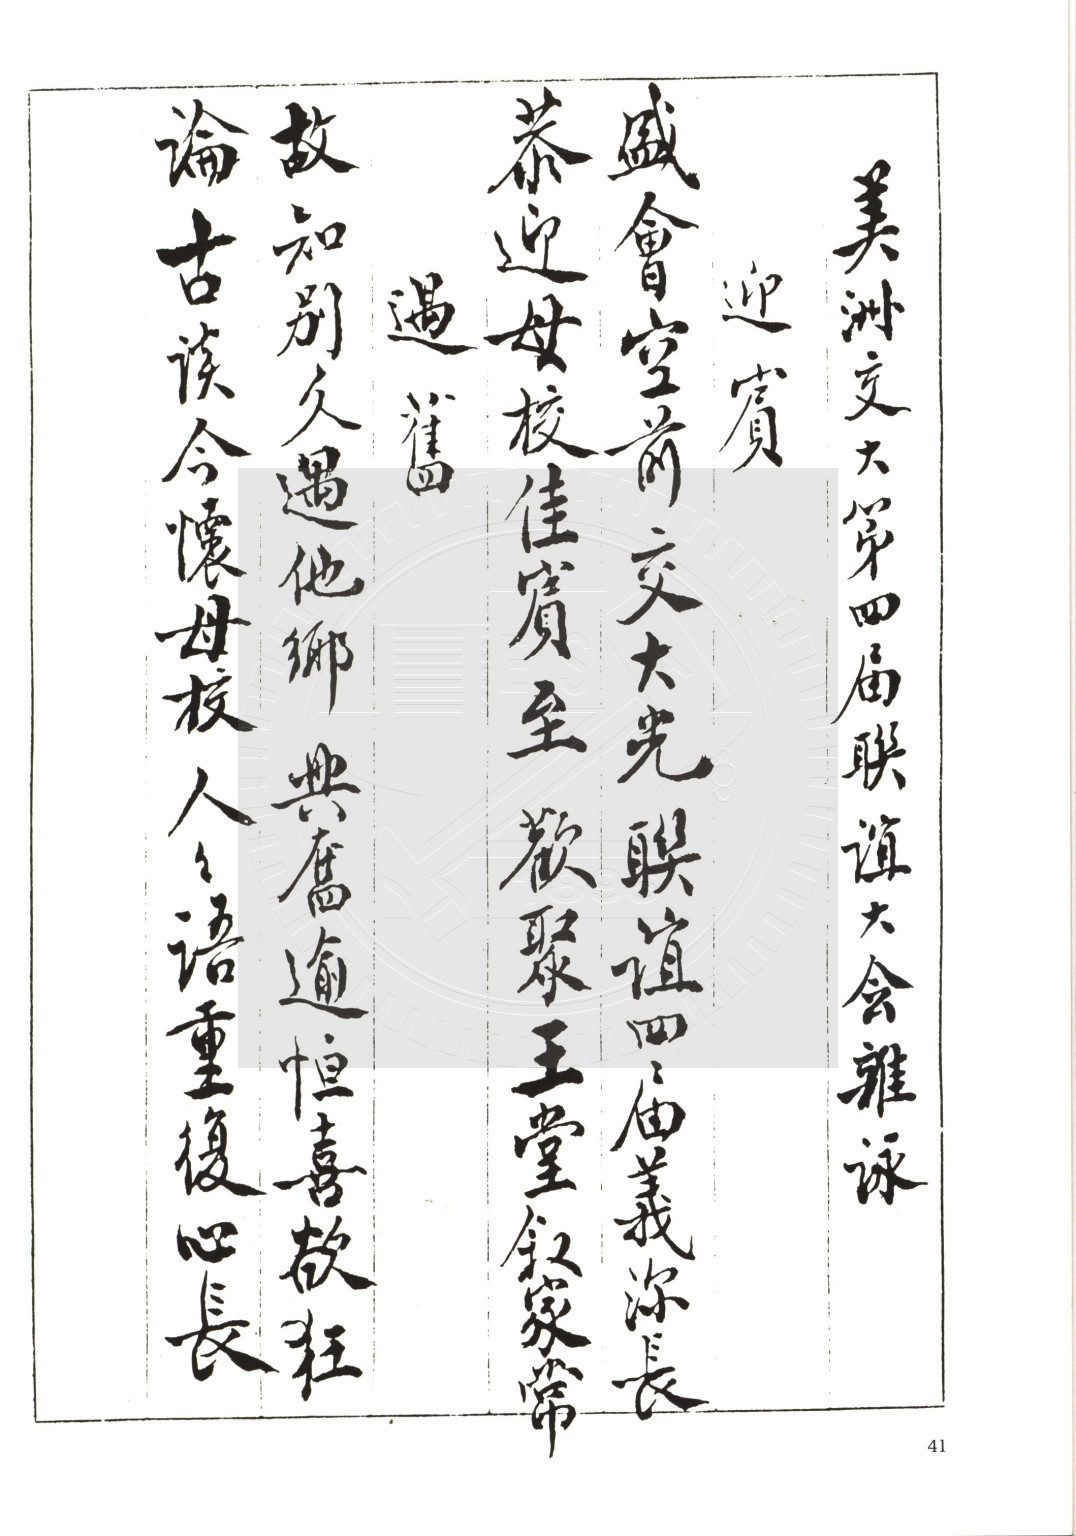 美洲交大第四届联誼大会雜詠
迎賓
盛會空前交大光 联誼四届義深長
恭迎母校佳賓至 歡聚王堂叙家常
遇舊
故知别久遇他鄉 興奮逾恒喜欲狂
論古談今懷母校 人々語重復心長
41